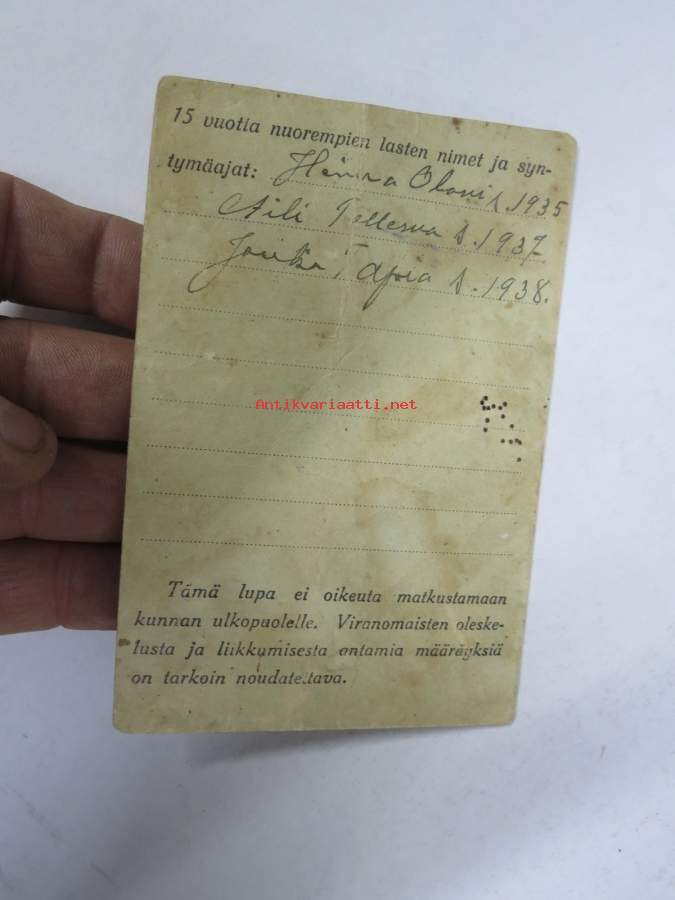 15 vuotta nuorempien lasten nimet ja syn-
tymäajat: Olavi s. 1935
Aili Tellervo s. 1937
Tapio s. 1938.
Antikvariaatti.net
Tämä lupa ei oikeuta matkustamaan
kunnan ulkopuolelle. Viranomaisten oleske-
lusta ja liikkumisesta antamia määräyksiä
on tarkoin noudatettava.